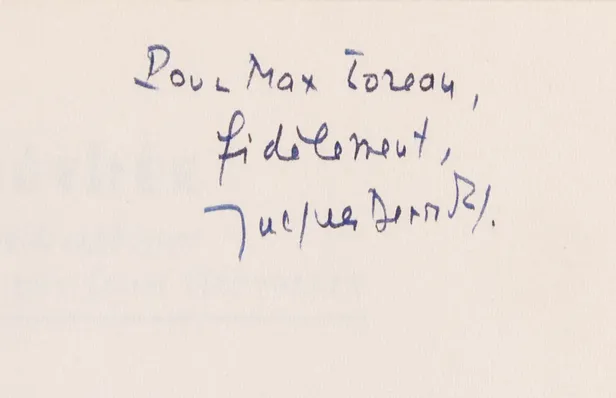 Pour Max Loreau,
fidèlement,
Jacques Derrida.